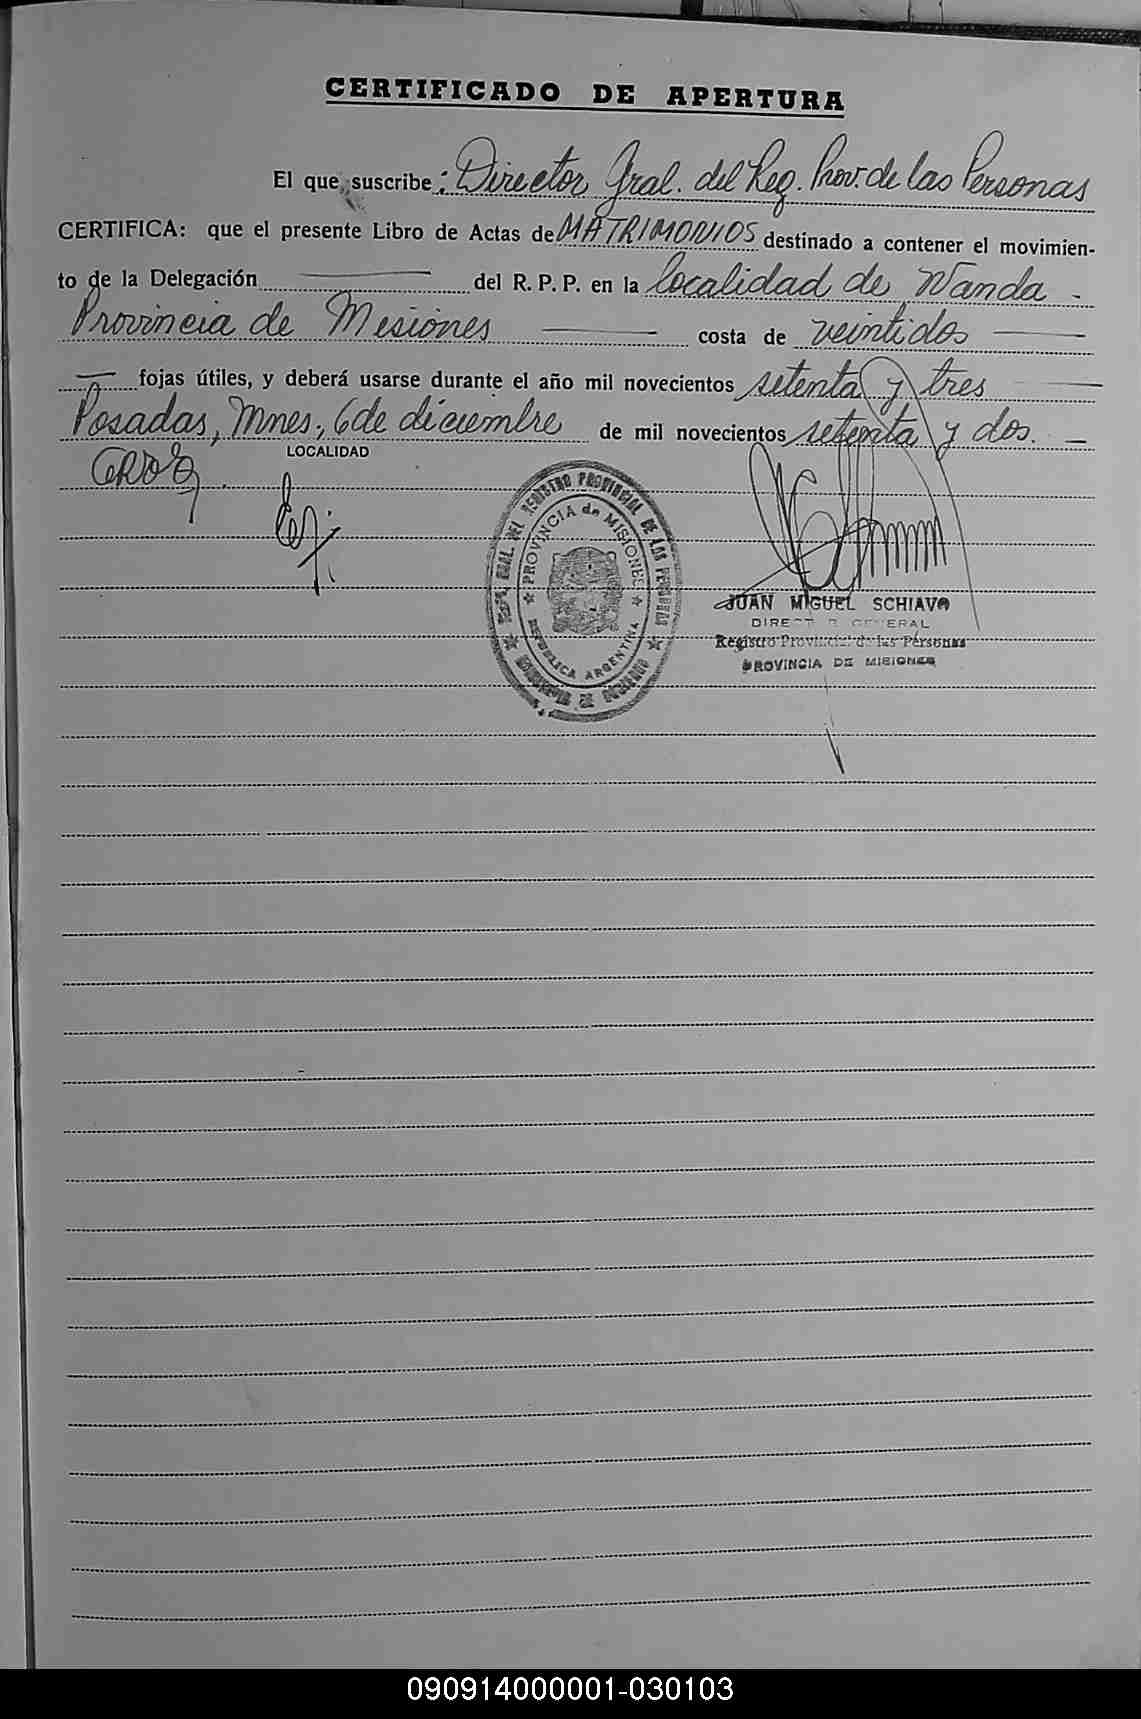 CERTIFICADO DE APERTURA
El que suscribe: Director Gral. del Reg. Prov. de las Personas
CERTIFICA: que el presente Libro de Actas de MATRIMONIOS destinado a contener el movimien-
to de la Delegación del R. P. P. en la localidad de Wanda -
Provincia de Misiones costa de veintidos
fojas útiles, y deberá usarse durante el año mil novecientos setenta y tres
Posadas, Mnes., 6 de diciembre de mil novecientos setenta y dos.
LOCALIDAD
GRAL. DEL REGISTRO PROVINCIAL DE LAS PERSONAS
PROVINCIA de MISIONES
REPUBLICA ARGENTINA
JUAN MIGUEL SCHIAVO
DIRECTOR GENERAL
Registro Provincial de las Personas
PROVINCIA DE MISIONES
090914000001-030103